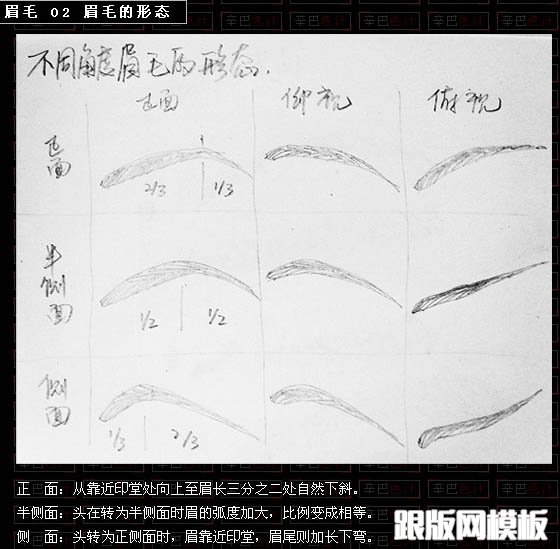 眉毛 02 眉毛的形态
不同角度眉毛的形态.
正面 仰视 俯视
正面
2/3 1/3
半侧面
1/2 1/2
侧面
1/3 2/3
正 面：从靠近印堂处向上至眉长三分之二处自然下斜。
半侧面：头在转为半侧面时眉的弧度加大，比例变成相等。
侧 面：头转为正侧面时，眉靠近印堂，眉尾则加长下弯。
跟版网模板